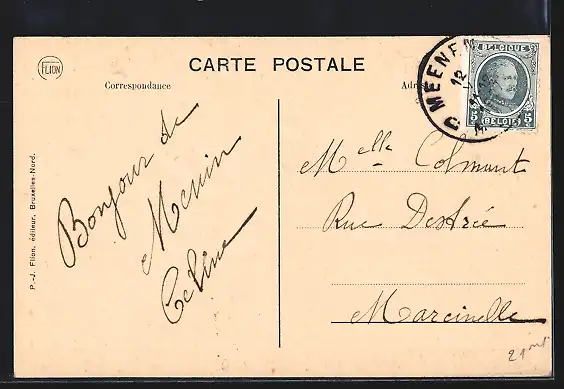 FLION
CARTE POSTALE
Correspondance
Adr
MEENEN
12
BELGIQUE
5 BELGIË 5
P.-J. Flion, éditeur, Bruxelles-Nord.
Bonjour de
Menin
Celine
Melle Colmant
Rue Destrée
Marcinelle